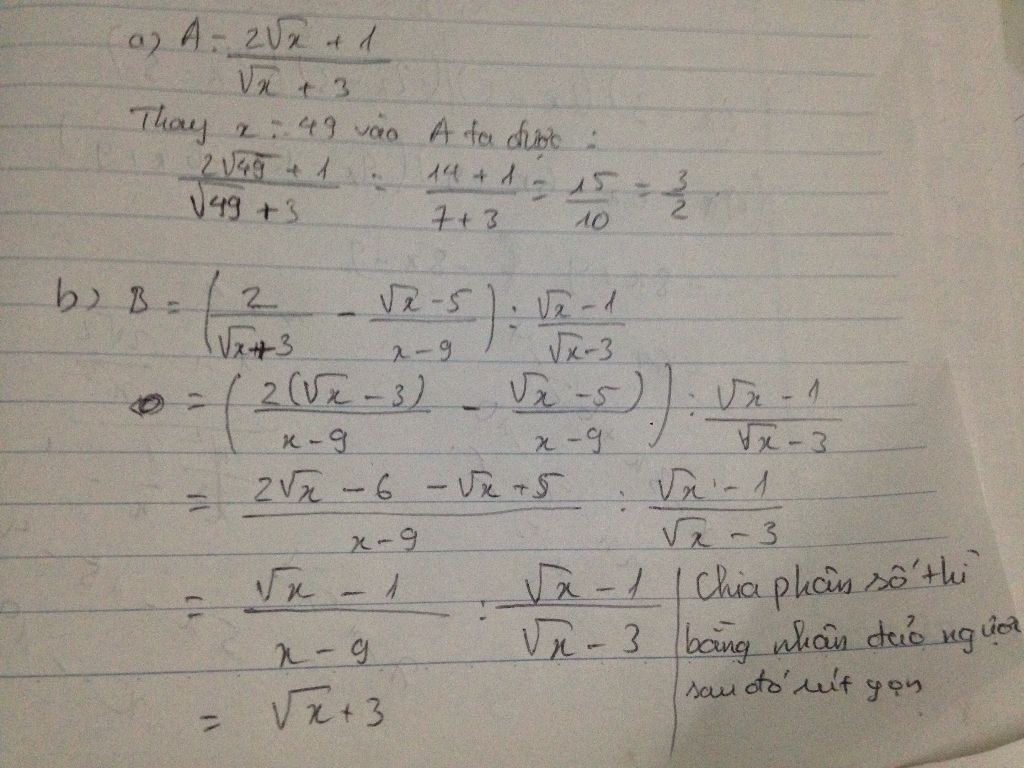 a) A = (2√x + 1)/(√x + 3)
Thay x = 49 vào A ta được :
(2√49 + 1)/(√49 + 3) = (14 + 1)/(7 + 3) = 15/10 = 3/2
b) B = (2/(√x + 3) - (√x - 5)/(x - 9)) : (√x - 1)/(√x - 3)
= (2(√x - 3)/(x - 9) - (√x - 5)/(x - 9)) : (√x - 1)/(√x - 3)
= (2√x - 6 - √x + 5)/(x - 9) : (√x - 1)/(√x - 3)
= (√x - 1)/(x - 9) : (√x - 1)/(√x - 3)
Chia phân số thì
bằng nhân đảo ngược
sau đó rút gọn
= √x + 3